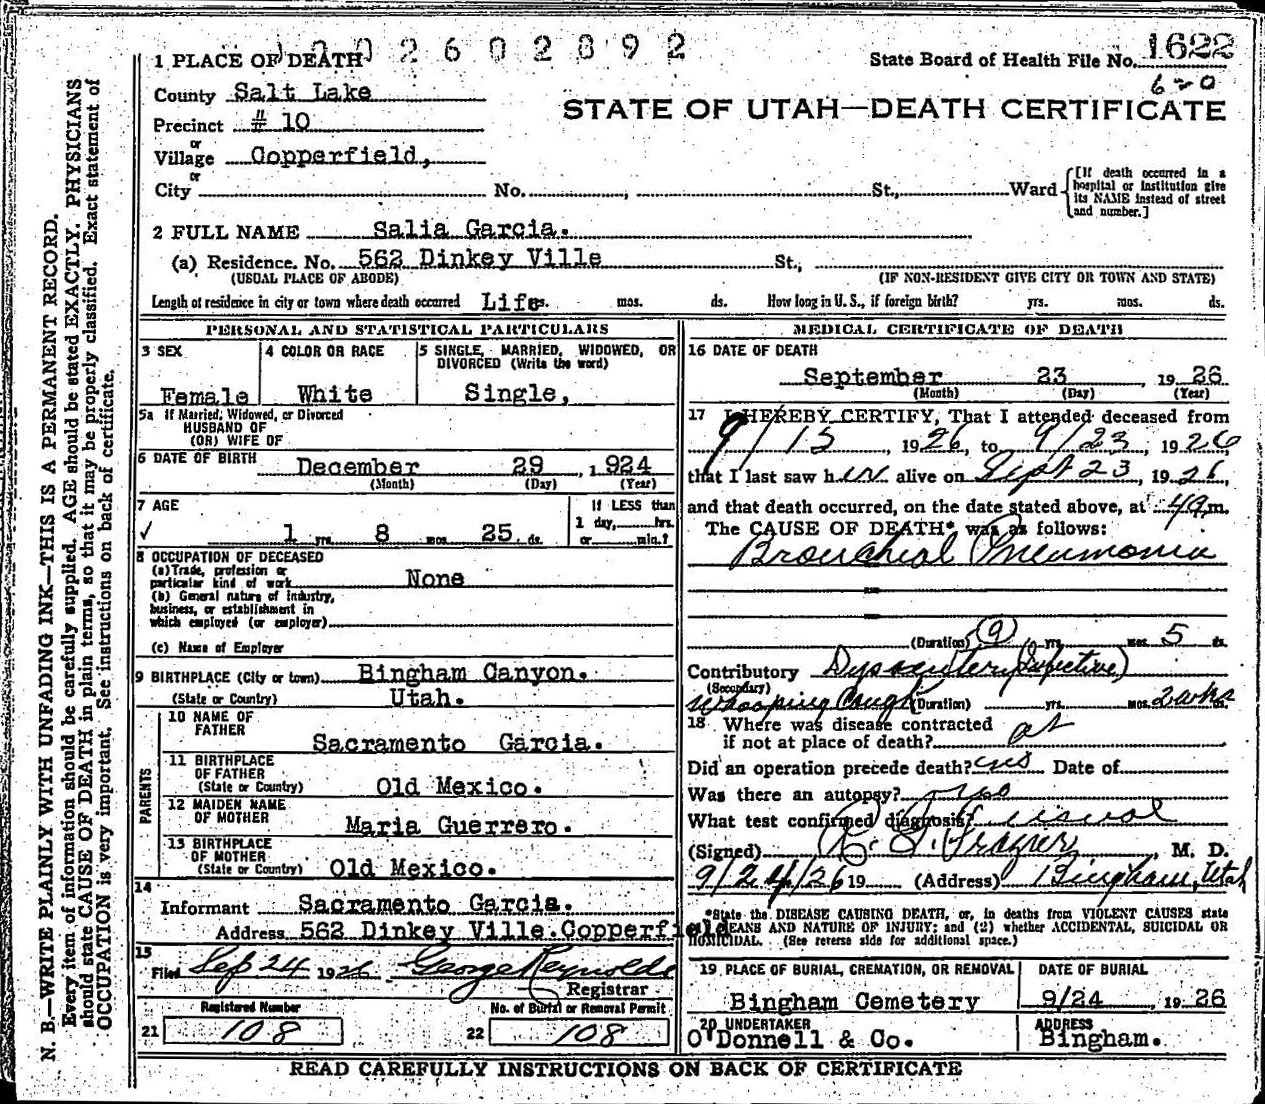 1 PLACE OF DEATH
2602892
State Board of Health File No. 1622
620
County Salt Lake
STATE OF UTAH—DEATH CERTIFICATE
Precinct # 10
or
Village Copperfield,
or
City No. , St., Ward
[If death occurred in a hospital or institution give its NAME instead of street and number.]
2 FULL NAME Salia Garcia.
(a) Residence. No. 562 Dinkey Ville St.,
(USUAL PLACE OF ABODE) (IF NON-RESIDENT GIVE CITY OR TOWN AND STATE)
Length of residence in city or town where death occurred Life yrs. mos. ds. How long in U. S., if foreign birth? yrs. mos. ds.
PERSONAL AND STATISTICAL PARTICULARS
3 SEX
Female
4 COLOR OR RACE
White
5 SINGLE, MARRIED, WIDOWED, OR DIVORCED (Write the word)
Single,
5a If Married, Widowed, or Divorced
HUSBAND OF
(OR) WIFE OF
6 DATE OF BIRTH December 29, 1924
(Month) (Day) (Year)
7 AGE
✓ 1 yrs. 8 mos. 25 ds.
If LESS than
1 day, hrs.
or min.?
8 OCCUPATION OF DECEASED
(a) Trade, profession or
particular kind of work None
(b) General nature of industry,
business, or establishment in
which employed (or employer)
(c) Name of Employer
9 BIRTHPLACE (City or town) Bingham Canyon.
(State or Country) Utah.
PARENTS
10 NAME OF
FATHER
Sacramento Garcia.
11 BIRTHPLACE
OF FATHER
(State or Country) Old Mexico.
12 MAIDEN NAME
OF MOTHER
Maria Guerrero.
13 BIRTHPLACE
OF MOTHER
(State or Country) Old Mexico.
14
Informant Sacramento Garcia.
Address 562 Dinkey Ville. Copperfield
15
Filed Sep 24 1926 George Reynolds
Registrar
Registered Number
21 108
No. of Burial or Removal Permit
22 108
MEDICAL CERTIFICATE OF DEATH
16 DATE OF DEATH
September 23, 1926
(Month) (Day) (Year)
17 I HEREBY CERTIFY, That I attended deceased from
9/13 1926, to 9/23 1926,
that I last saw her alive on Sept 23, 1926,
and that death occurred, on the date stated above, at 4 a m.
The CAUSE OF DEATH* was as follows:
Bronchial Pneumonia
(Duration) yrs. mos. 5 ds.
Contributory Dysentery (Infective)
(Secondary)
Whooping Cough (Duration) yrs. mos. 2 wks
18 Where was disease contracted
if not at place of death? at
Did an operation precede death? no Date of
Was there an autopsy? no
What test confirmed diagnosis? visual
(Signed) Frazier, M. D.
9/24/26 19 (Address) Bingham, Utah
*State the DISEASE CAUSING DEATH, or, in deaths from VIOLENT CAUSES state
MEANS AND NATURE OF INJURY; and (2) whether ACCIDENTAL, SUICIDAL OR
HOMICIDAL. (See reverse side for additional space.)
19 PLACE OF BURIAL, CREMATION, OR REMOVAL
Bingham Cemetery
DATE OF BURIAL
9/24, 1926
20 UNDERTAKER
O'Donnell & Co.
ADDRESS
Bingham.
READ CAREFULLY INSTRUCTIONS ON BACK OF CERTIFICATE
N. B.—WRITE PLAINLY WITH UNFADING INK—THIS IS A PERMANENT RECORD.
Every item of information should be carefully supplied. AGE should be stated EXACTLY. PHYSICIANS
should state CAUSE OF DEATH in plain terms, so that it may be properly classified. Exact statement of
OCCUPATION is very important. See instructions on back of certificate.